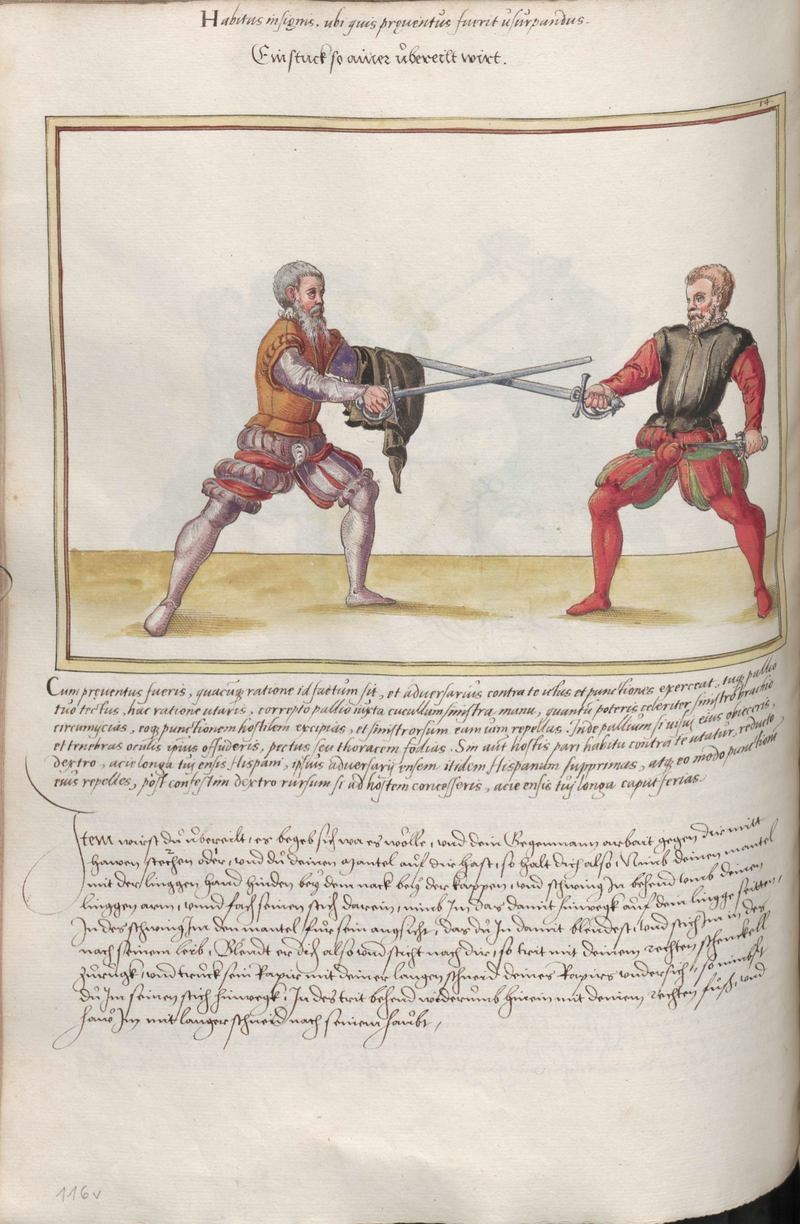 Habitus insignis, ubi quis pręventus fuerit usurpandus.
Ein stuck so ainer ůbereilt wirt.
14
Cum pręventus fueris, quacūq; ratione id factum sit, et adversarius contra te ictus et punctiones exerceat, tuq; pallio
tuo tectus, hac ratione utaris, correpto pallio iuxta cucullum sinistra manu, quantū poteris celeriter sinistro brachio
circumycias, eoq; punctionem hostilem excipias, et sinistrorsum eam ium repellas. Inde pallium si visui eius obieceris,
et tenebras oculis ipsius offuderis, pectus seu thoracem fodias. Sin aūt hostis pari habitu contra te utatur, reducto
dextro, acie longa tui ensis Hispani, ipsius adversarij ensem itidem Hispanum supprimas, atq; eo modo punctionē
eius repelles, post confestim dextro rursum si ad hostem concesseris, acie ensis tui longa caput ferias.
Item wirst du ůbereilt, es begeb sich wa es wölle, vnd dein Gegenmann arbait gegen dir mitt
hawen stechen oder, vnd du deinen Mantel auf dir hast, so halt dich also, Nimb deinen mantel
mit der linggen hand hinden bey dem nack bey der kappen, vnd schwing In behend vmb deinen
linggen arm, vnnd fach seinen stich darein, nimb Im das damit hinwegk auf dein lingge seitten,
In des schwing Im den mantel für sein angsicht, das du In damit blendest, vnd stich Im in des
nach seinem leib, Blendt er dich also vnd sticht nach dir, so trit mit deinem rechten schenckell
zurugk, vnd truck sein Rapir mit deiner langen schneid deines Rapirs vndersich, so nimbst
du Im seinen stich hinwegk, In des trit behend widerumb hinein mit deinem rechten fuß, vnd
haw Im mit langer schneid nach seinem haubt,
116v